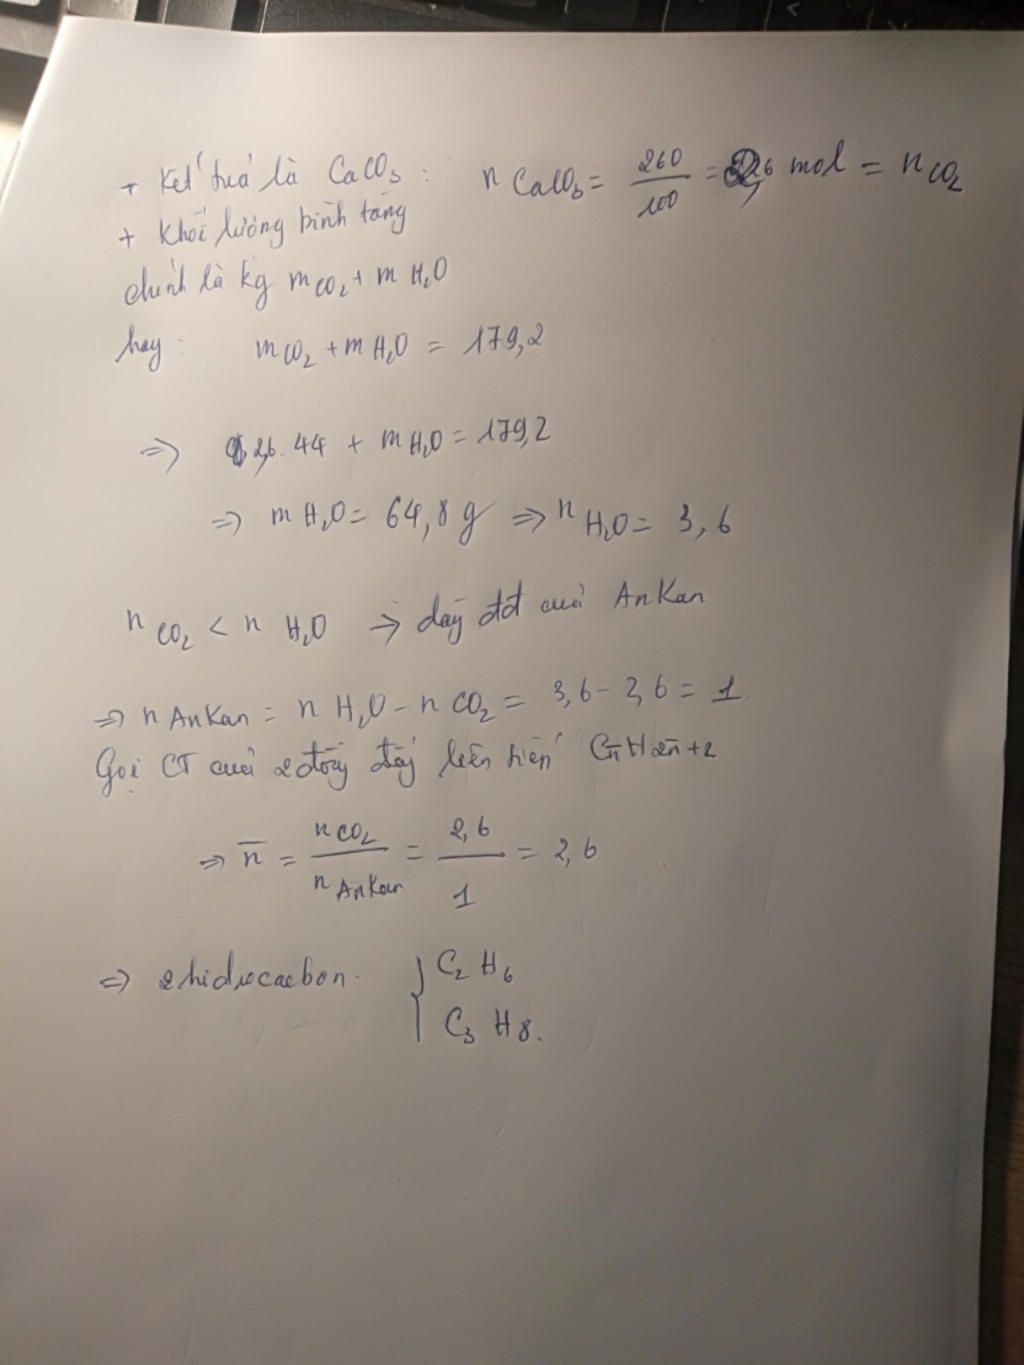 + Kết tuả là CaCO₃ : n CaCO₃ = 260/100 = 2,6 mol = n CO₂
+ Khối lường bình tăng
chính là kg m CO₂ + m H₂O
hay : m CO₂ + m H₂O = 179,2
=> 2,6 . 44 + m H₂O = 179,2
=> m H₂O = 64,8 g => n H₂O = 3,6
n CO₂ < n H₂O => dãy đđ cuả AnKan
=> n AnKan = n H₂O - n CO₂ = 3,6 - 2,6 = 1
Gọi CT cuả 2 đồng đẳng liên tiến Cn̅ H2n̅+2
=> n̅ = n CO₂ / n AnKan = 2,6 / 1 = 2,6
=> 2 hidrocacbon : { C₂ H₆
C₃ H₈.